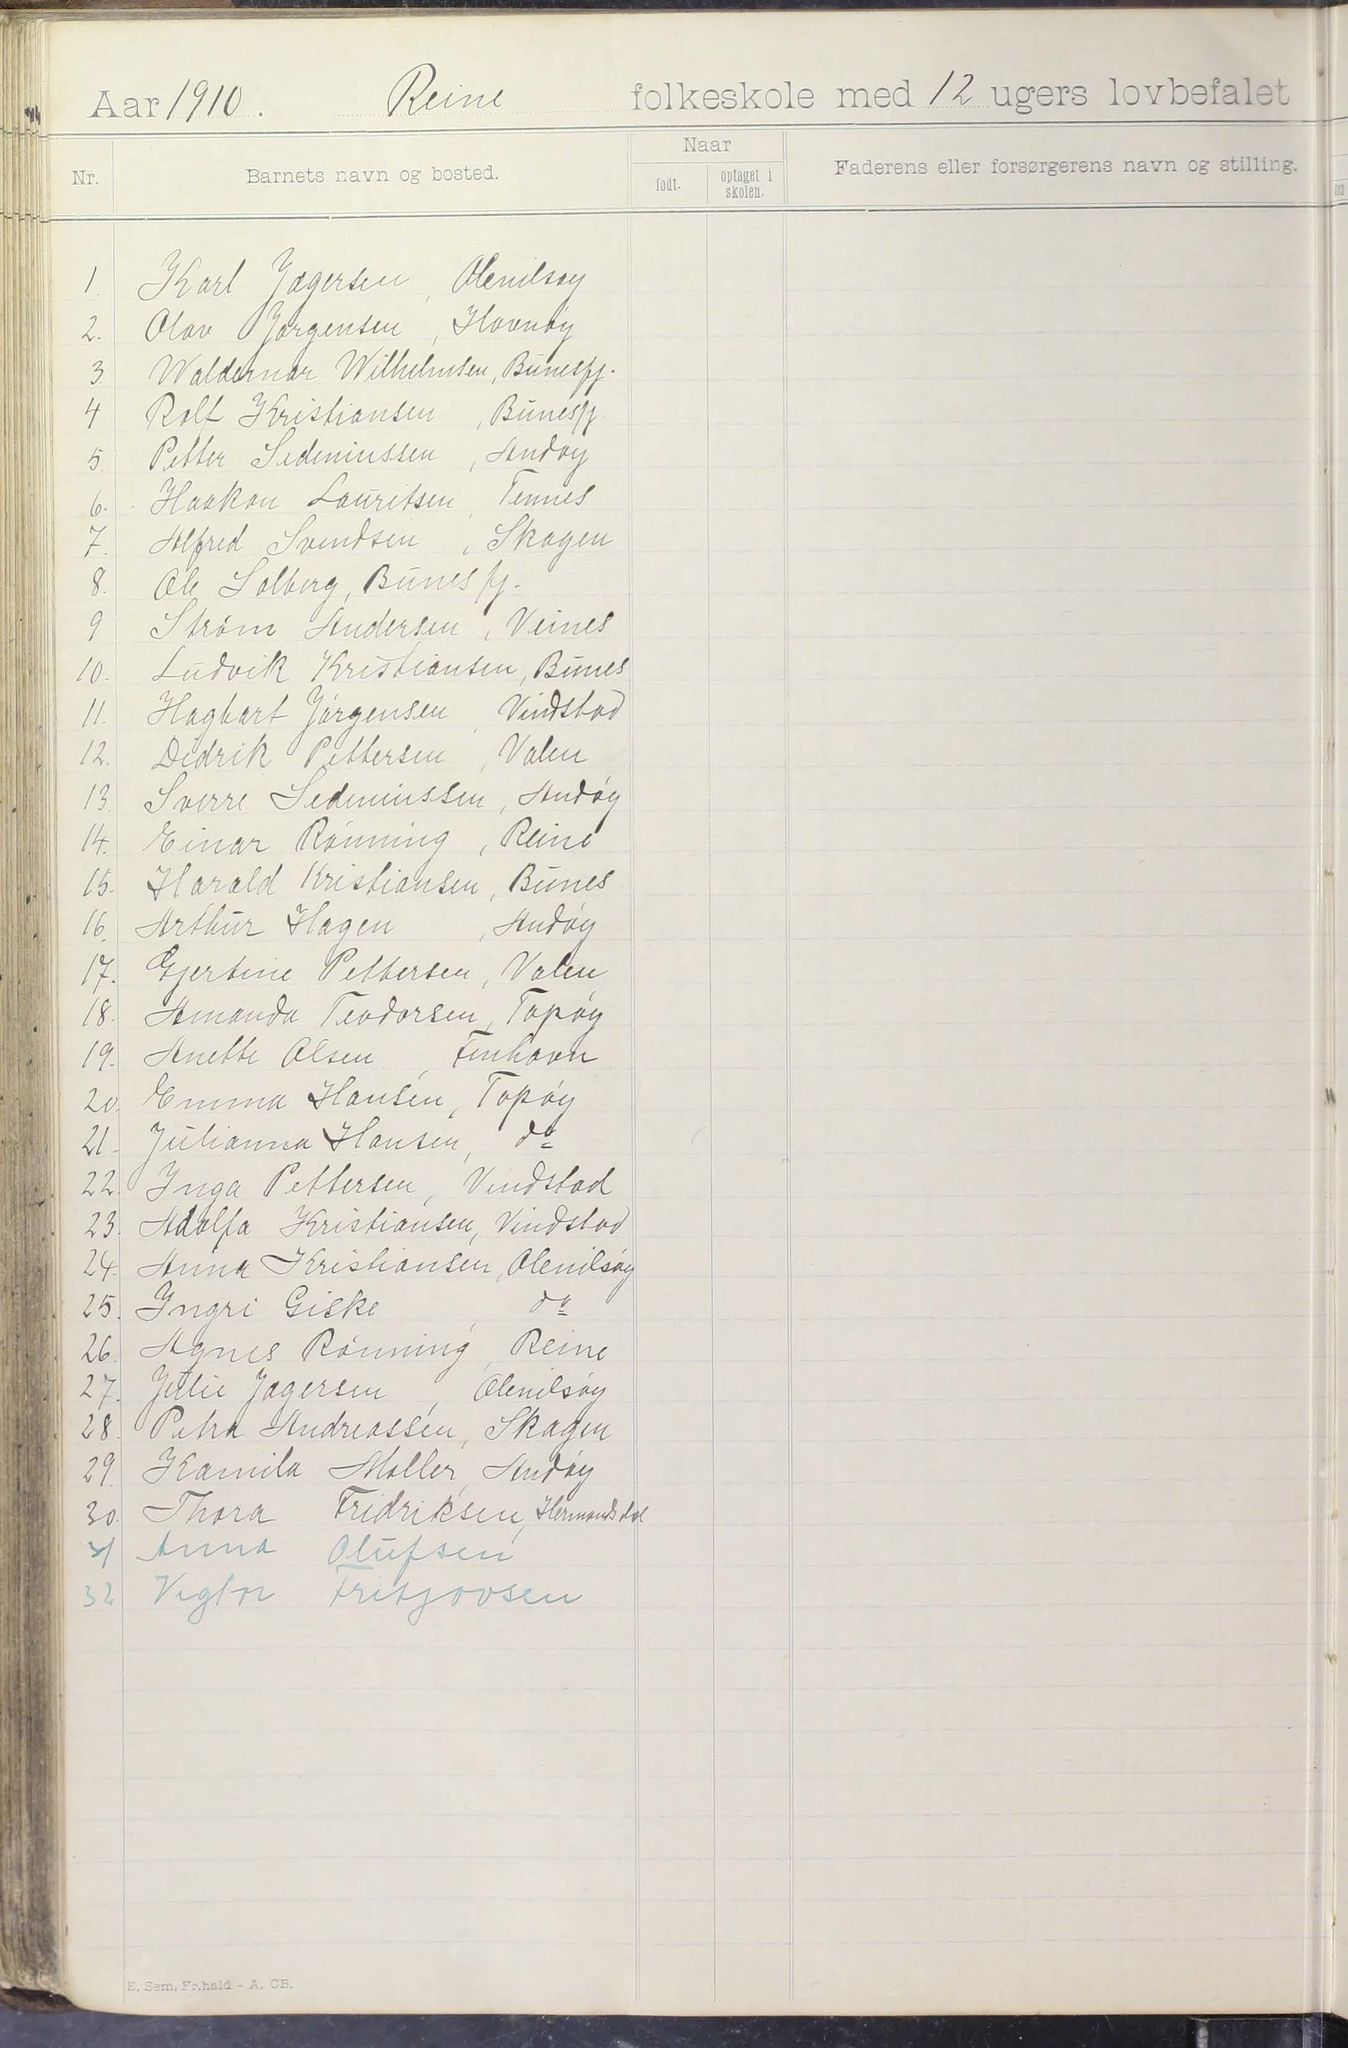 Aar 1910. Reine folkeskole med 12 ugers lovbefalet
Nr. Barnets navn og bosted. Naar Faderens eller forsørgerens navn og stilling.
født. optaget i skolen.
1. Karl Jægersen, Olenilsøy
2. Olav Jørgensen, Havnøy
3. Waldemar Wilhelmsen, Bunesfj.
4 Rolf Kristiansen, Bunesfj
5. Petter Sedeniussen, Andøy
6. Haakon Lauritsen, Tennes
7. Alfred Svendsen, Skagen
8. Ole Solberg, Bunesfj.
9 Strøm Andersen, Veines
10. Ludvik Kristiansen, Bunes
11. Hagbart Jørgensen, Vindstad
12. Didrik Pettersen, Valen
13. Sverre Sedeniussen, Andøy
14. Einar Rønning, Reine
15. Harald Kristiansen, Bunes
16. Arthur Hagen, Andøy
17. Gjertine Pettersen, Valen
18. Amanda Teodorsen, Topøy
19. Anette Olsen, Fenhavn
20. Emma Hansen, Topøy
21. Julianna Hansen, do
22. Inga Pettersen, Vindstad
23. Adolfa Kristiansen, Vindstad
24. Anna Kristiansen, Olenilsøy
25. Ingri Giske, do
26. Agnes Rønning, Reine
27. Julie Jægersen, Olenilsøy
28. Petra Andreassen, Skagen
29. Kamila Møller, Andøy
30. Thora Fridriksen, Hermandsdal
31 Anna Olufsen
32 Vigtor Fritjovsen
E. Sem, Fr.hald - A. CB.